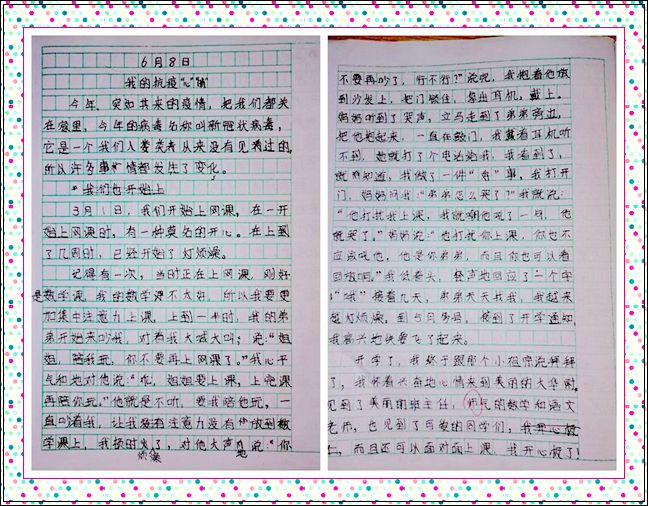 6月8日
我的抗疫"心"情
今年，突如其来的疫情，把我们都关
在家里，今年的病毒名称叫新冠状病毒，
它是一个我们人类从来没有见过的，
所以许多事情都发生了变化。
我们也开始上
3月1日，我们开始上网课，在一开
始上网课时，有一种莫名的开心。在上到
了几周时，已经开始了烦燥。
记得有一次，当时正在上网课，刚好
是数学课，我的数学课不太好，所以我要更
加集中注意力上课，上到一半时，我的弟
弟开始来吵我，对着我大喊大叫；说："姐
姐，陪我玩，你不要再上网课了。"我心平
气和地对他说："乖，姐姐要上课，上完课
再陪你玩。"他就是不听，要我陪他玩，一
直吵着我，让我注意力没有放到数
学课上，我顿时发了，对他大声说："你
烦燥 地
不要再吵了，行不行？"说完，我抱着他放
到沙发上，把门锁住，拿出耳机，戴上，
妈妈听到了哭声，立马走到了弟弟旁边，
把他抱起来，一直在敲门，我戴着耳机听
不到，她就打了个电话给我，我看到了，
就知道，我做了一件"好"事，我打开
门，妈妈问我："弟弟怎么哭了？"我就说：
"他打扰我上课，我就嘲他吼了一声，他
就哭了。"妈妈说："他打扰你上课，你也不
应该吼他，他是你弟弟，而且你也可以看
回放啊。"我低着头，轻声地回应了一个字
："哦"接着几天，弟弟天天找我，我越来
越烦燥。到5月号，接到了开学通知，
我高兴地快要飞了起来。
开学了，我终于跟那个小祖宗说拜拜
了，我怀着兴奋地心情来到美丽的大华附，
见到了美丽的班主任，帅气的数学和语文
老师，也见到了可爱的同学们，我开心极
了，而且还可以面对面上课，我开心极了！